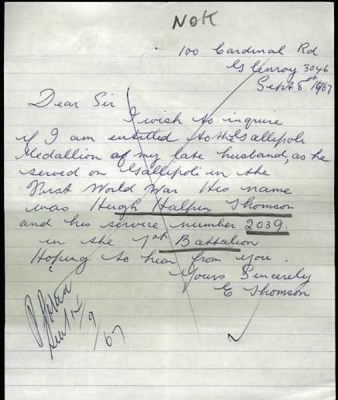 NOK
100 Cardinal Rd
Glenroy 3046
Sept 8th 1967
Dear Sir
I wish to inquire
if I am entitled to the Gallipoli
Medallion of my late husband, as he
served on Gallipoli in the
First World War His name
was Hugh Halpin Thomson
and his service number 2039.
in the 7st Battalion
Hoping to hear from you.
Yours Sincerely
E Thomson
9
67